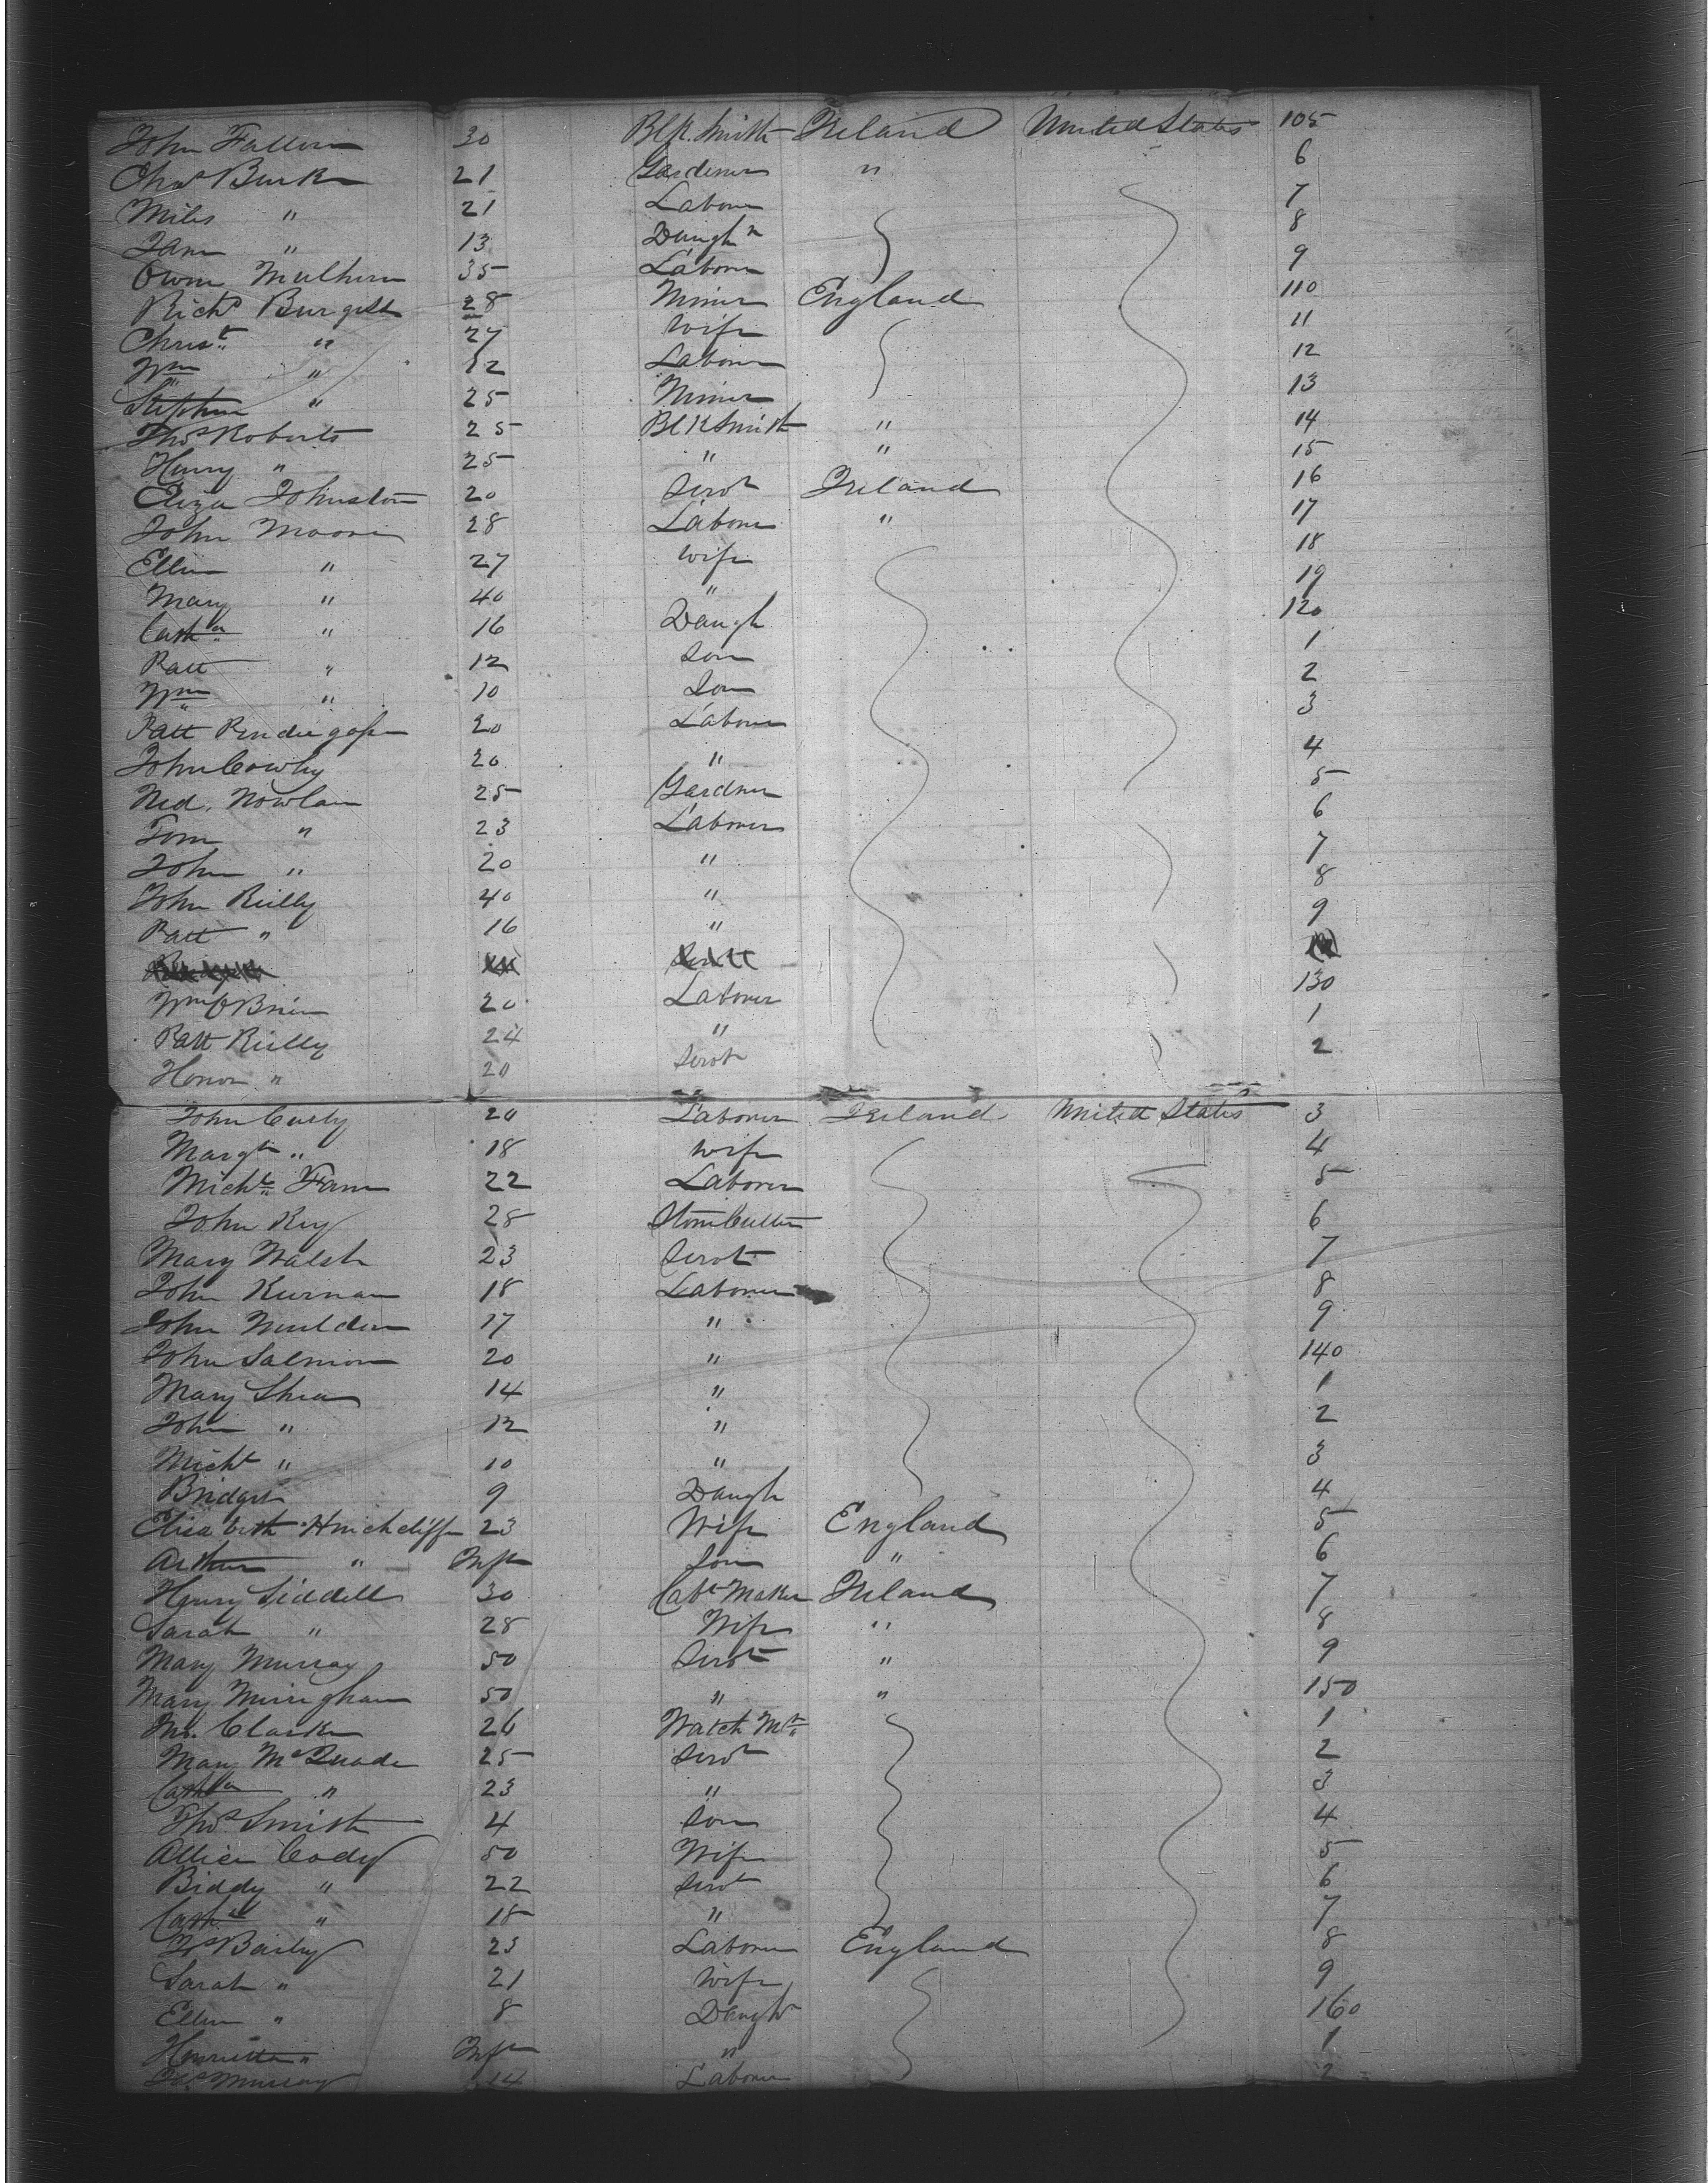 John Fallon 30 Blk. Smith Ireland United States 105
Chas Burke 21 Gardener " 6
Miles " 21 Labourer 7
Jane " 13 Daughr 8
Owen Mulhern 35 Laborer 9
Richd Burgess 28 Miner England 110
Christ " 27 Wife 11
Wm " 12 Laborer 12
Stephen " 25 Miner 13
Thos Roberts 25 Blk Smith " 14
Henry " 25 " " 15
Eliza Johnston 20 Servt Ireland 16
John Moore 28 Laborer " 17
Ellen " 27 Wife 18
Mary " 40 " 19
Cathn " 16 Daugh 120
Patt " 12 Son 1
Wm " 10 Son 2
Patt 20 Laborer 3
John Cowley 20 " 4
Ned. Nowlan 25 Gardner 5
Tom " 23 Laborer 6
John " 20 " 7
John Reilly 40 " 8
Patt " 16 " 9
Wm O Brien 20 Laborer 130
Patt Reilly 24 " 1
Honor " 20 Servt 2
John Curly 20 Laborer Ireland United States 3
Margt " 18 Wife 4
Michl Fann 22 Laborer 5
John Key 28 Stone Cutter 6
Mary Walsh 23 Servt 7
John Kiernan 18 Laborer 8
John Muldoon 17 " 9
John Salmon 20 " 140
Mary Shea 14 " 1
John " 12 " 2
Michl " 10 " 3
Bridget 9 Daugh 4
Elizabeth Hinchcliffe 23 Wife England 5
Arthur " Inft Son " 6
Henry Siddell 30 Cabt Maker Ireland 7
Sarah " 28 Wife " 8
Mary Murray 50 Servt " 9
Mary 50 " " 150
Clarke 26 Watch Mr 1
Mary McQuade 25 Servt 2
Cathn " 23 " 3
Thos Smith 4 Son 4
Allice Cody 50 Wife 5
Biddy " 22 Servt 6
Cathn " 18 " 7
Bailey 23 Laborer England 8
Sarah " 21 Wife 9
Ellen " 8 Daughr 160
Henrietta " Inft " 1
Murray 14 Laborer 2